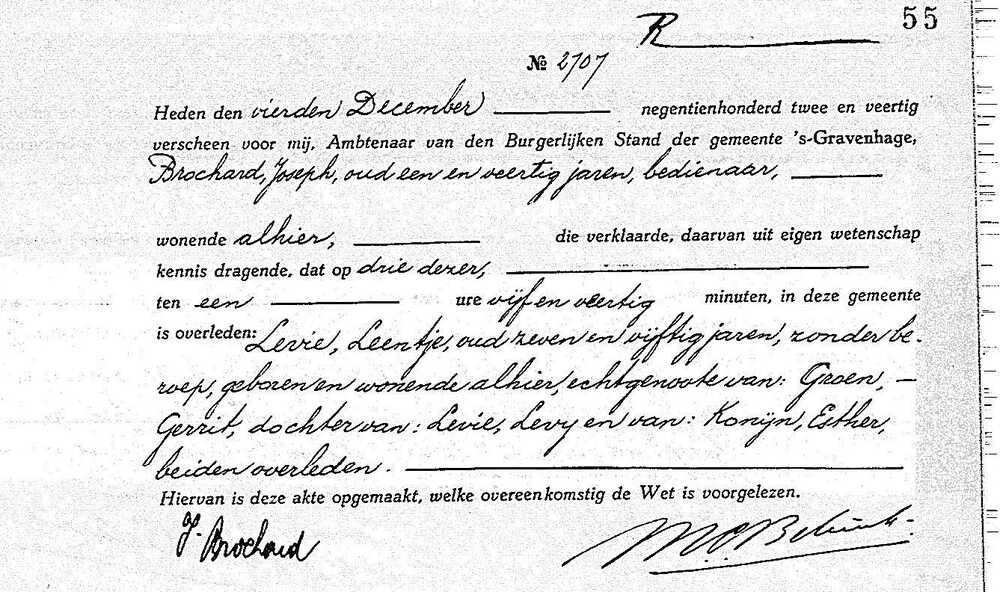 R
55
№ 2707
Heden den vierden December negentienhonderd twee en veertig
verscheen voor mij, Ambtenaar van den Burgerlijken Stand der gemeente 's-Gravenhage,
Brochard, Joseph, oud een en veertig jaren, bedienaar,
wonende alhier, die verklaarde, daarvan uit eigen wetenschap
kennis dragende, dat op drie dezer,
ten een ure vijf en veertig minuten, in deze gemeente
is overleden: Levie, Leentje, oud zeven en vijftig jaren, zonder be-
roep, geboren en wonende alhier, echtgenoote van: Groen, —
Gerrit, dochter van: Levie, Levy en van: Konijn, Esther,
beiden overleden.
Hiervan is deze akte opgemaakt, welke overeenkomstig de Wet is voorgelezen.
J. Brochard